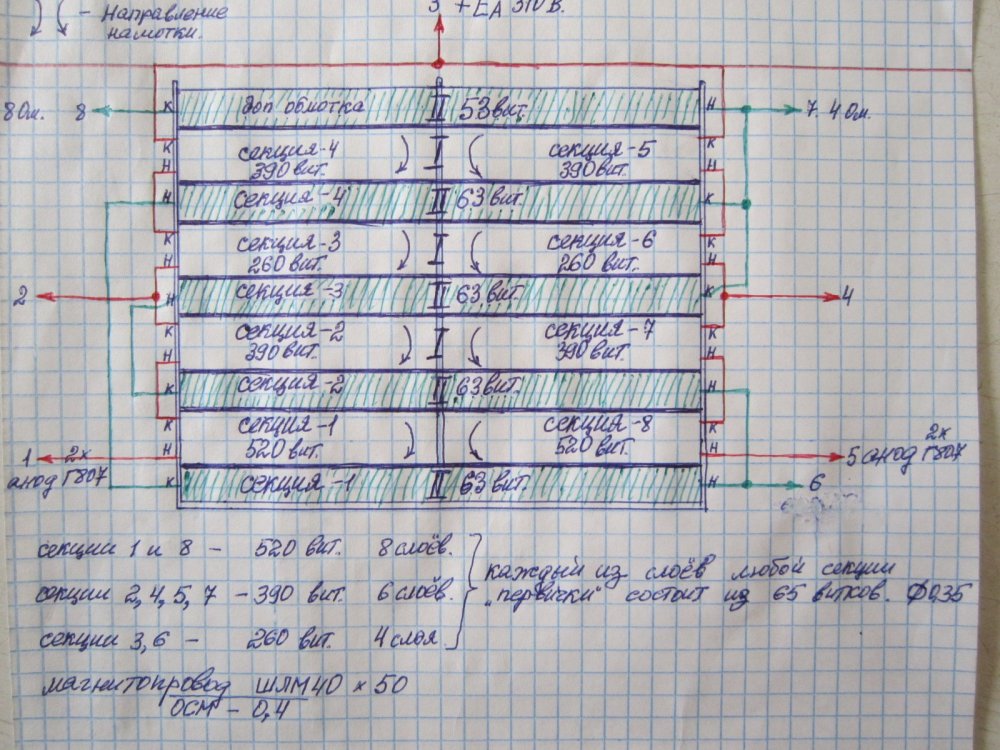 – Направление
намотки.
3 + ЕА 310 В.
8 Ом. 8 К доп обмотка II 53 вит. Н 7. 4 Ом.
К К
секция-4 I секция-5
Н 390 вит. 390 вит. Н
Н секция -4 II 63 вит. К
К секция-3 I секция-6 К
Н 260 вит. 260 вит. Н
2 Н секция -3 II 63 вит. К 4
К секция-2 I секция-7 К
Н 390 вит. 390 вит. Н
К секция-2 II 63 вит. Н
К секция-1 секция-8 К
1 2х Н 520 вит. 520 вит. Н 5 анод 2х Г807
анод Г807
К секция -1 II 63 вит. Н 6
секции 1 и 8 – 520 вит. 8 слоёв.
секции 2,4,5,7 – 390 вит. 6 слоёв.
секции 3,6 – 260 вит. 4 слоя.
каждый из слоёв любой секции
„первички" состоит из 65 витков. Ф0,35
магнитопровод ШЛМ 40 × 50
ОСМ – 0,4